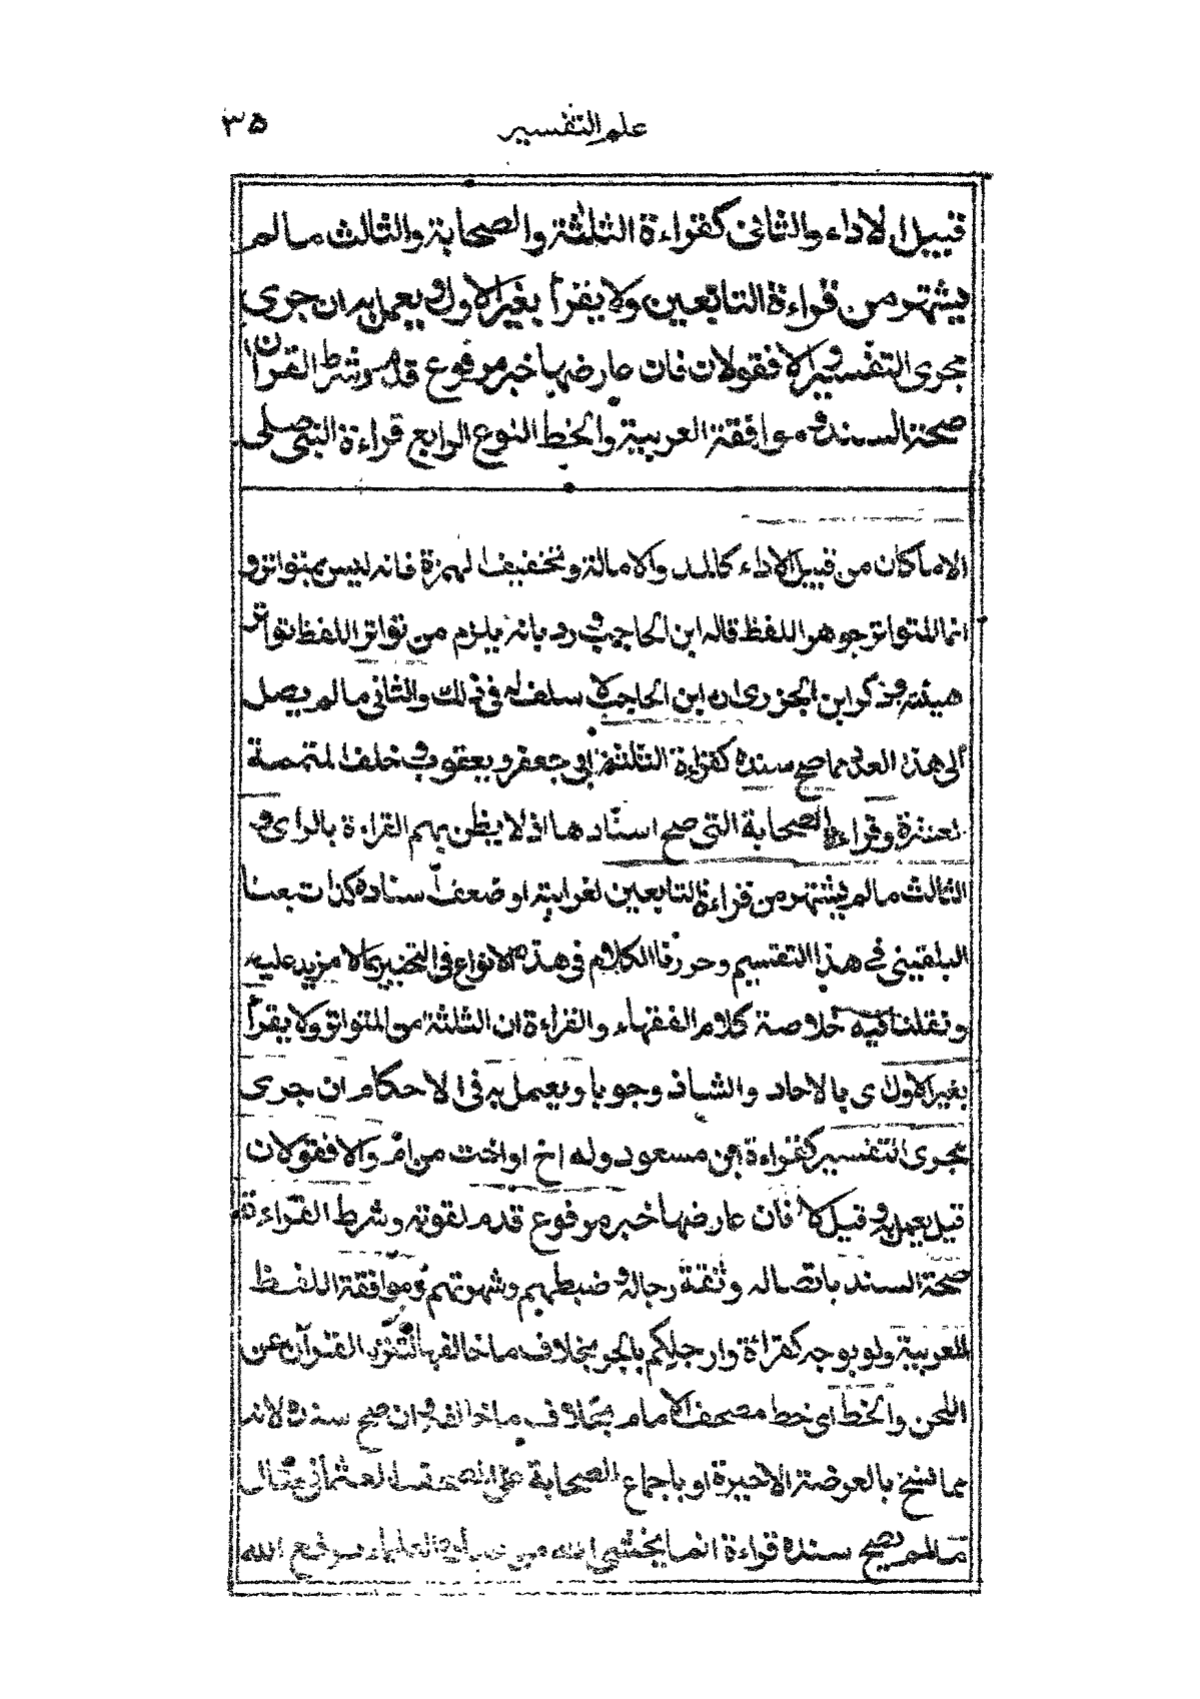 علم التفسير ٣٥
قبيل الاداء والثانى كقراءة الثلثة والصحابة والثالث مالم
يشتهر من قراءة التابعين ولا يقرأ بغير الاول ويعمل به ان جرى
مجرى التفسير والا فقولان فان عارضها خبر مرفوع قدم وشرط القرآن
صحة السند وموافقة العربية والخط النوع الرابع قراءة النبى صلى
الا ما كان من قبيل الاداء كالمد والامالة وتخفيف الهمزة فانه ليس بمتواتر و
انما المتواتر جوهر اللفظ قاله ابن الحاجب ورد بانه يلزم من تواتر اللفظ تواتر
هيئته وذكر ابن الجزرى ان ابن الحاجب لا سلف له فى ذلك والثانى مالم يصل
الى هذا العدد مما صح سنده كقراءة الثلثة ابى جعفر ويعقوب وخلف المتممة
لعشرة وقراءة الصحابة التى صح اسنادها اذ لا يظن بهم القراءة بالراى و
الثالث مالم يشتهر من قراءة التابعين لغرابته او ضعف اسناده كذا تبعنا
البلقينى فى هذا التقسيم وحررنا الكلام فى هذه الانواع فى التحبير بما لا مزيد عليه
ونقلنا فيه خلاصة كلام الفقهاء والقراءة ان الثلثة من المتواتر ولا يقرأ
بغير الاول اى بالاحاد والشاذ وجوبا ويعمل به فى الاحكام ان جرى
مجرى التفسير كقراءة ابن مسعود وله اخ او اخت من ام والا فقولان
قيل يعمل به وقيل لا فان عارضها خبر مرفوع قدم لقوته وشرط القراءة
صحة السند باتصاله وثقة رجاله وضبطهم وشهرتهم وموافقة اللفظ
للعربية ولو بوجه كقراءة وارجلكم بالجر بخلاف ما خالفها لتنزه القرآن عن
اللحن والخط اى خط مصحف الامام بخلاف ما خالفه وان صح سنده لانه
مما نسخ بالعرضة الاخيرة او باجماع الصحابة على المصحف العثمانى مثال
مالم يصح سنده قراءة انما يخشى الله من عباده العلماء برفع الله